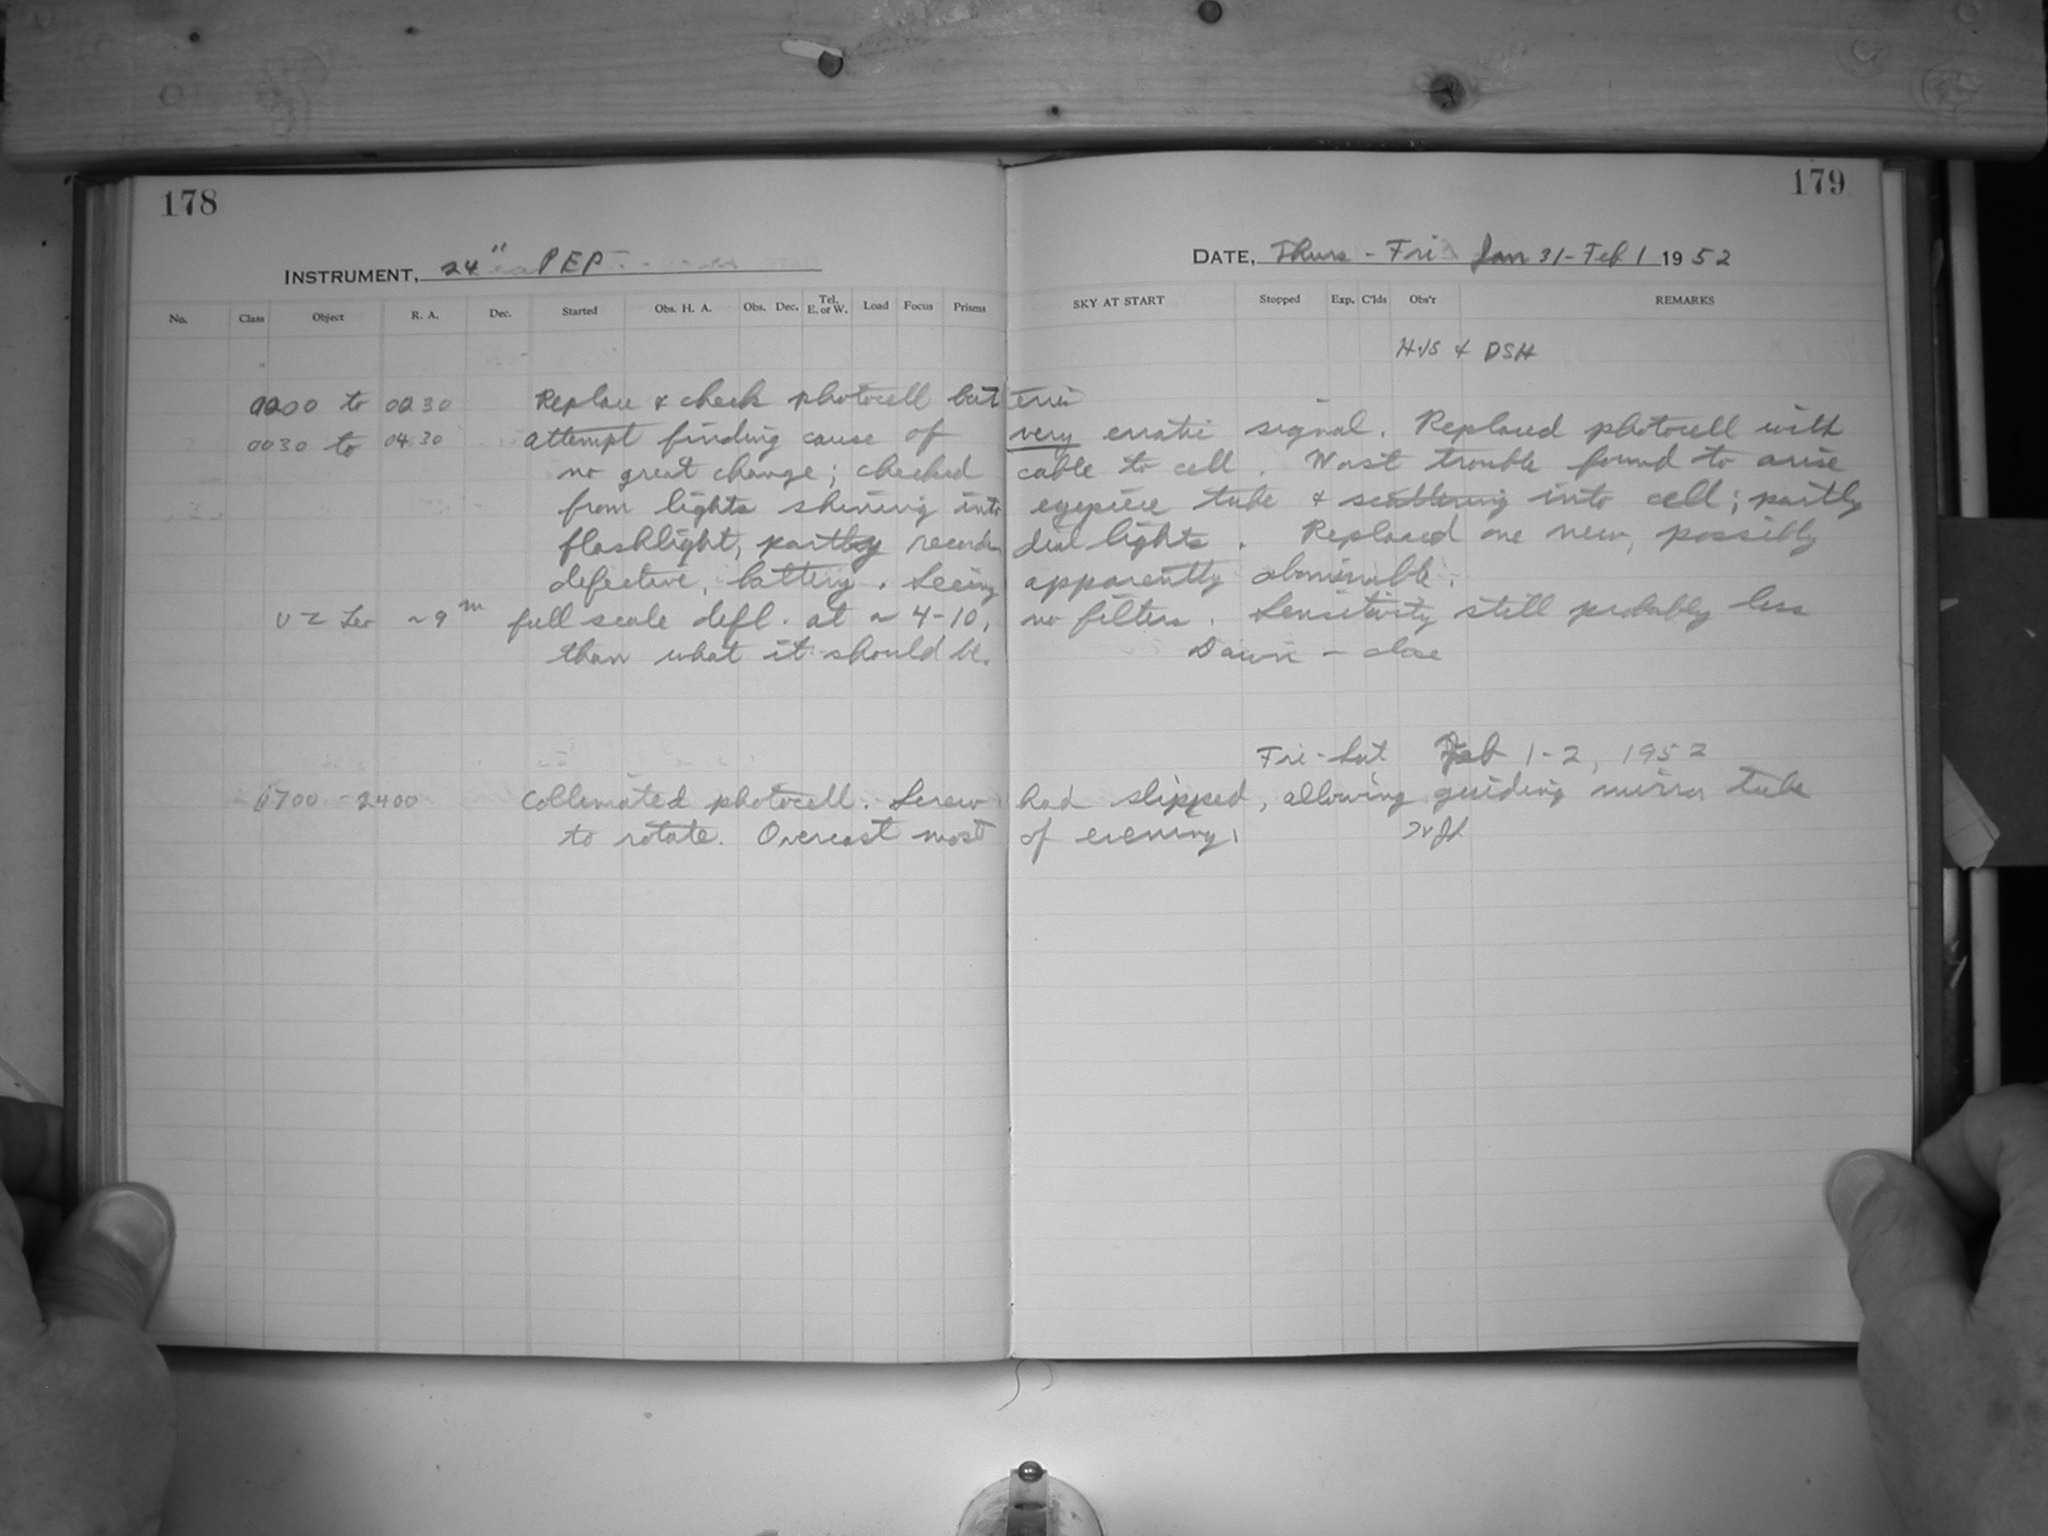 178
179
INSTRUMENT, 24" PEP
DATE, Thurs - Fri Jan 31 - Feb 1 1952
No. Class Object R. A. Dec. Started Obs. H. A. Obs. Dec. Tel. E. or W. Load Focus Prisms SKY AT START Stopped Exp. C'lds Obs'r REMARKS
HJS & DSH
to 0030 Replace & check photocell batteries
0030 to 0430 attempt finding cause of very erratic signal. Replaced photocell with
no great change; checked cable to cell. Worst trouble found to arise
from lights shining into eyepiece tube & scattering into cell; partly
flashlight, partly recorder dial lights. Replaced one new, possibly
defective, battery. Seeing apparently abominable.
UZ Leo ~9m full scale defl. at ~ 4-10, no filters. Sensitivity still probably less
than what it should be. Dawn - close
Fri-Sat Feb 1-2, 1952
1700 - 2400 Collimated photocell. Screw had slipped, allowing guiding mirror tube
to rotate. Overcast most of evening.